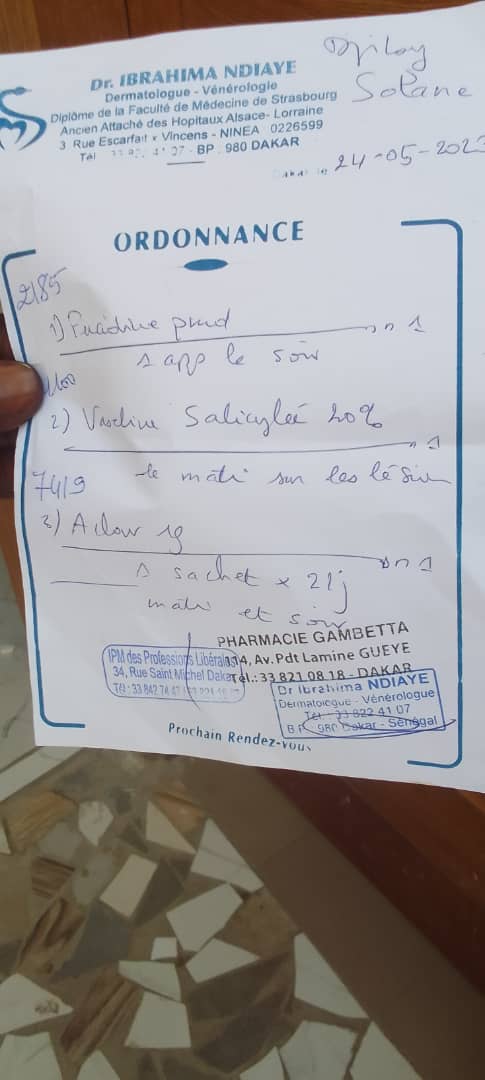 Dr. IBRAHIMA NDIAYE
Dermatologue - Vénérologie
Diplôme de la Faculté de Médecine de Strasbourg
Ancien Attaché des Hopitaux Alsace- Lorraine
3 Rue Escarfait x Vincens - NINEA 0226599
Tél 41 07 - BP : 980 DAKAR
Solane
24-05-2023
ORDONNANCE
2185
1) Fucidine pmd 1
1 app le soir
1100
2) Vaseline Salicylée 20% 1
7419
le matin sur les lésions
3) Aclow 1g 1
1 sachet x 21j
matin et soir
PHARMACIE GAMBETTA
114, Av. Pdt Lamine GUEYE
Tél.: 33 821 08 18 - DAKAR
IPM des Professions Libérales
34, Rue Saint Michel Dakar
Tél : 33 842 74 47
Dr Ibrahima NDIAYE
Dermatologue - Vénérologue
Tél : 33 822 41 07
B.P. 980 Dakar - Sénégal
Prochain Rendez-vous